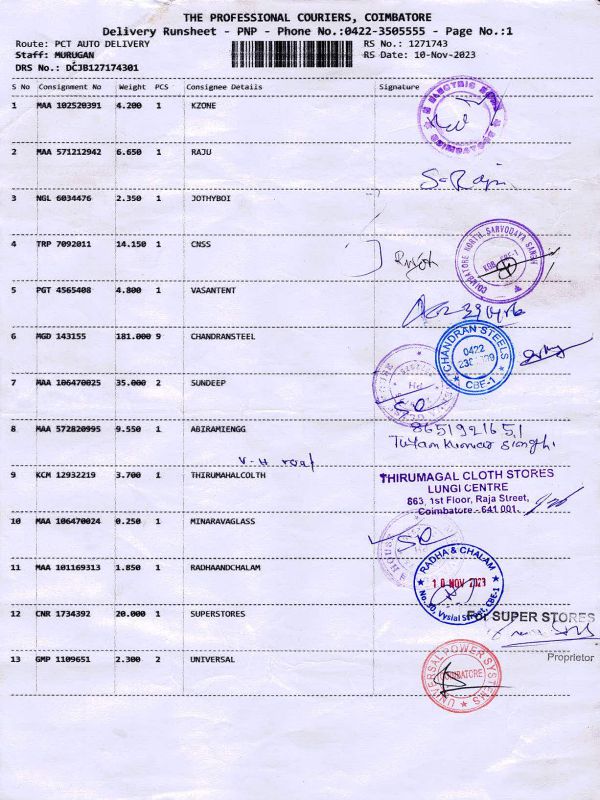 THE PROFESSIONAL COURIERS, COIMBATORE
Delivery Runsheet - PNP - Phone No.:0422-3505555 - Page No.:1
Route: PCT AUTO DELIVERY RS No.: 1271743
Staff: MURUGAN RS Date: 10-Nov-2023
DRS No.: DCJB127174301
S No Consignment No Weight PCS Consignee Details Signature
1 MAA 102520391 4.200 1 KZONE
COIMBATORE
2 MAA 571212942 6.650 1 RAJU
S-Raju
3 NGL 6034476 2.350 1 JOTHYBOI
4 TRP 7092011 14.150 1 CNSS
COIMBATORE NORTH SARVODAYA SANGH
CBE-1
5 PGT 4565408 4.800 1 VASANTENT
6 MGD 143155 181.000 9 CHANDRANSTEEL
CHANDRAN STEELS
0422
CBE-1
7 MAA 106470025 35.000 2 SUNDEEP
8 MAA 572820995 9.550 1 ABIRAMIENGG
8651921651
9 KCM 12932219 3.700 1 THIRUMAHALCOLTH
THIRUMAGAL CLOTH STORES
LUNGI CENTRE
863, 1st Floor, Raja Street,
Coimbatore - 641 001.
10 MAA 106470024 0.250 1 MINARAVAGLASS
11 MAA 101169313 1.850 1 RADHAANDCHALAM
RADHA & CHALAM
10 NOV 2023
No.30, Vysial Street, CBE-1
12 CNR 1734392 20.000 1 SUPERSTORES
For SUPER STORES
Proprietor
13 GMP 1109651 2.300 2 UNIVERSAL
UNIVERSAL POWER SYSTEMS